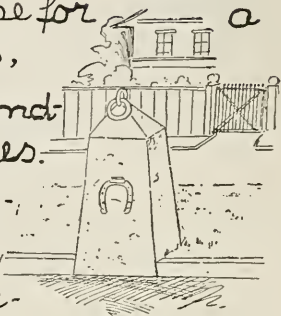 se for a
s,
nd-
es.